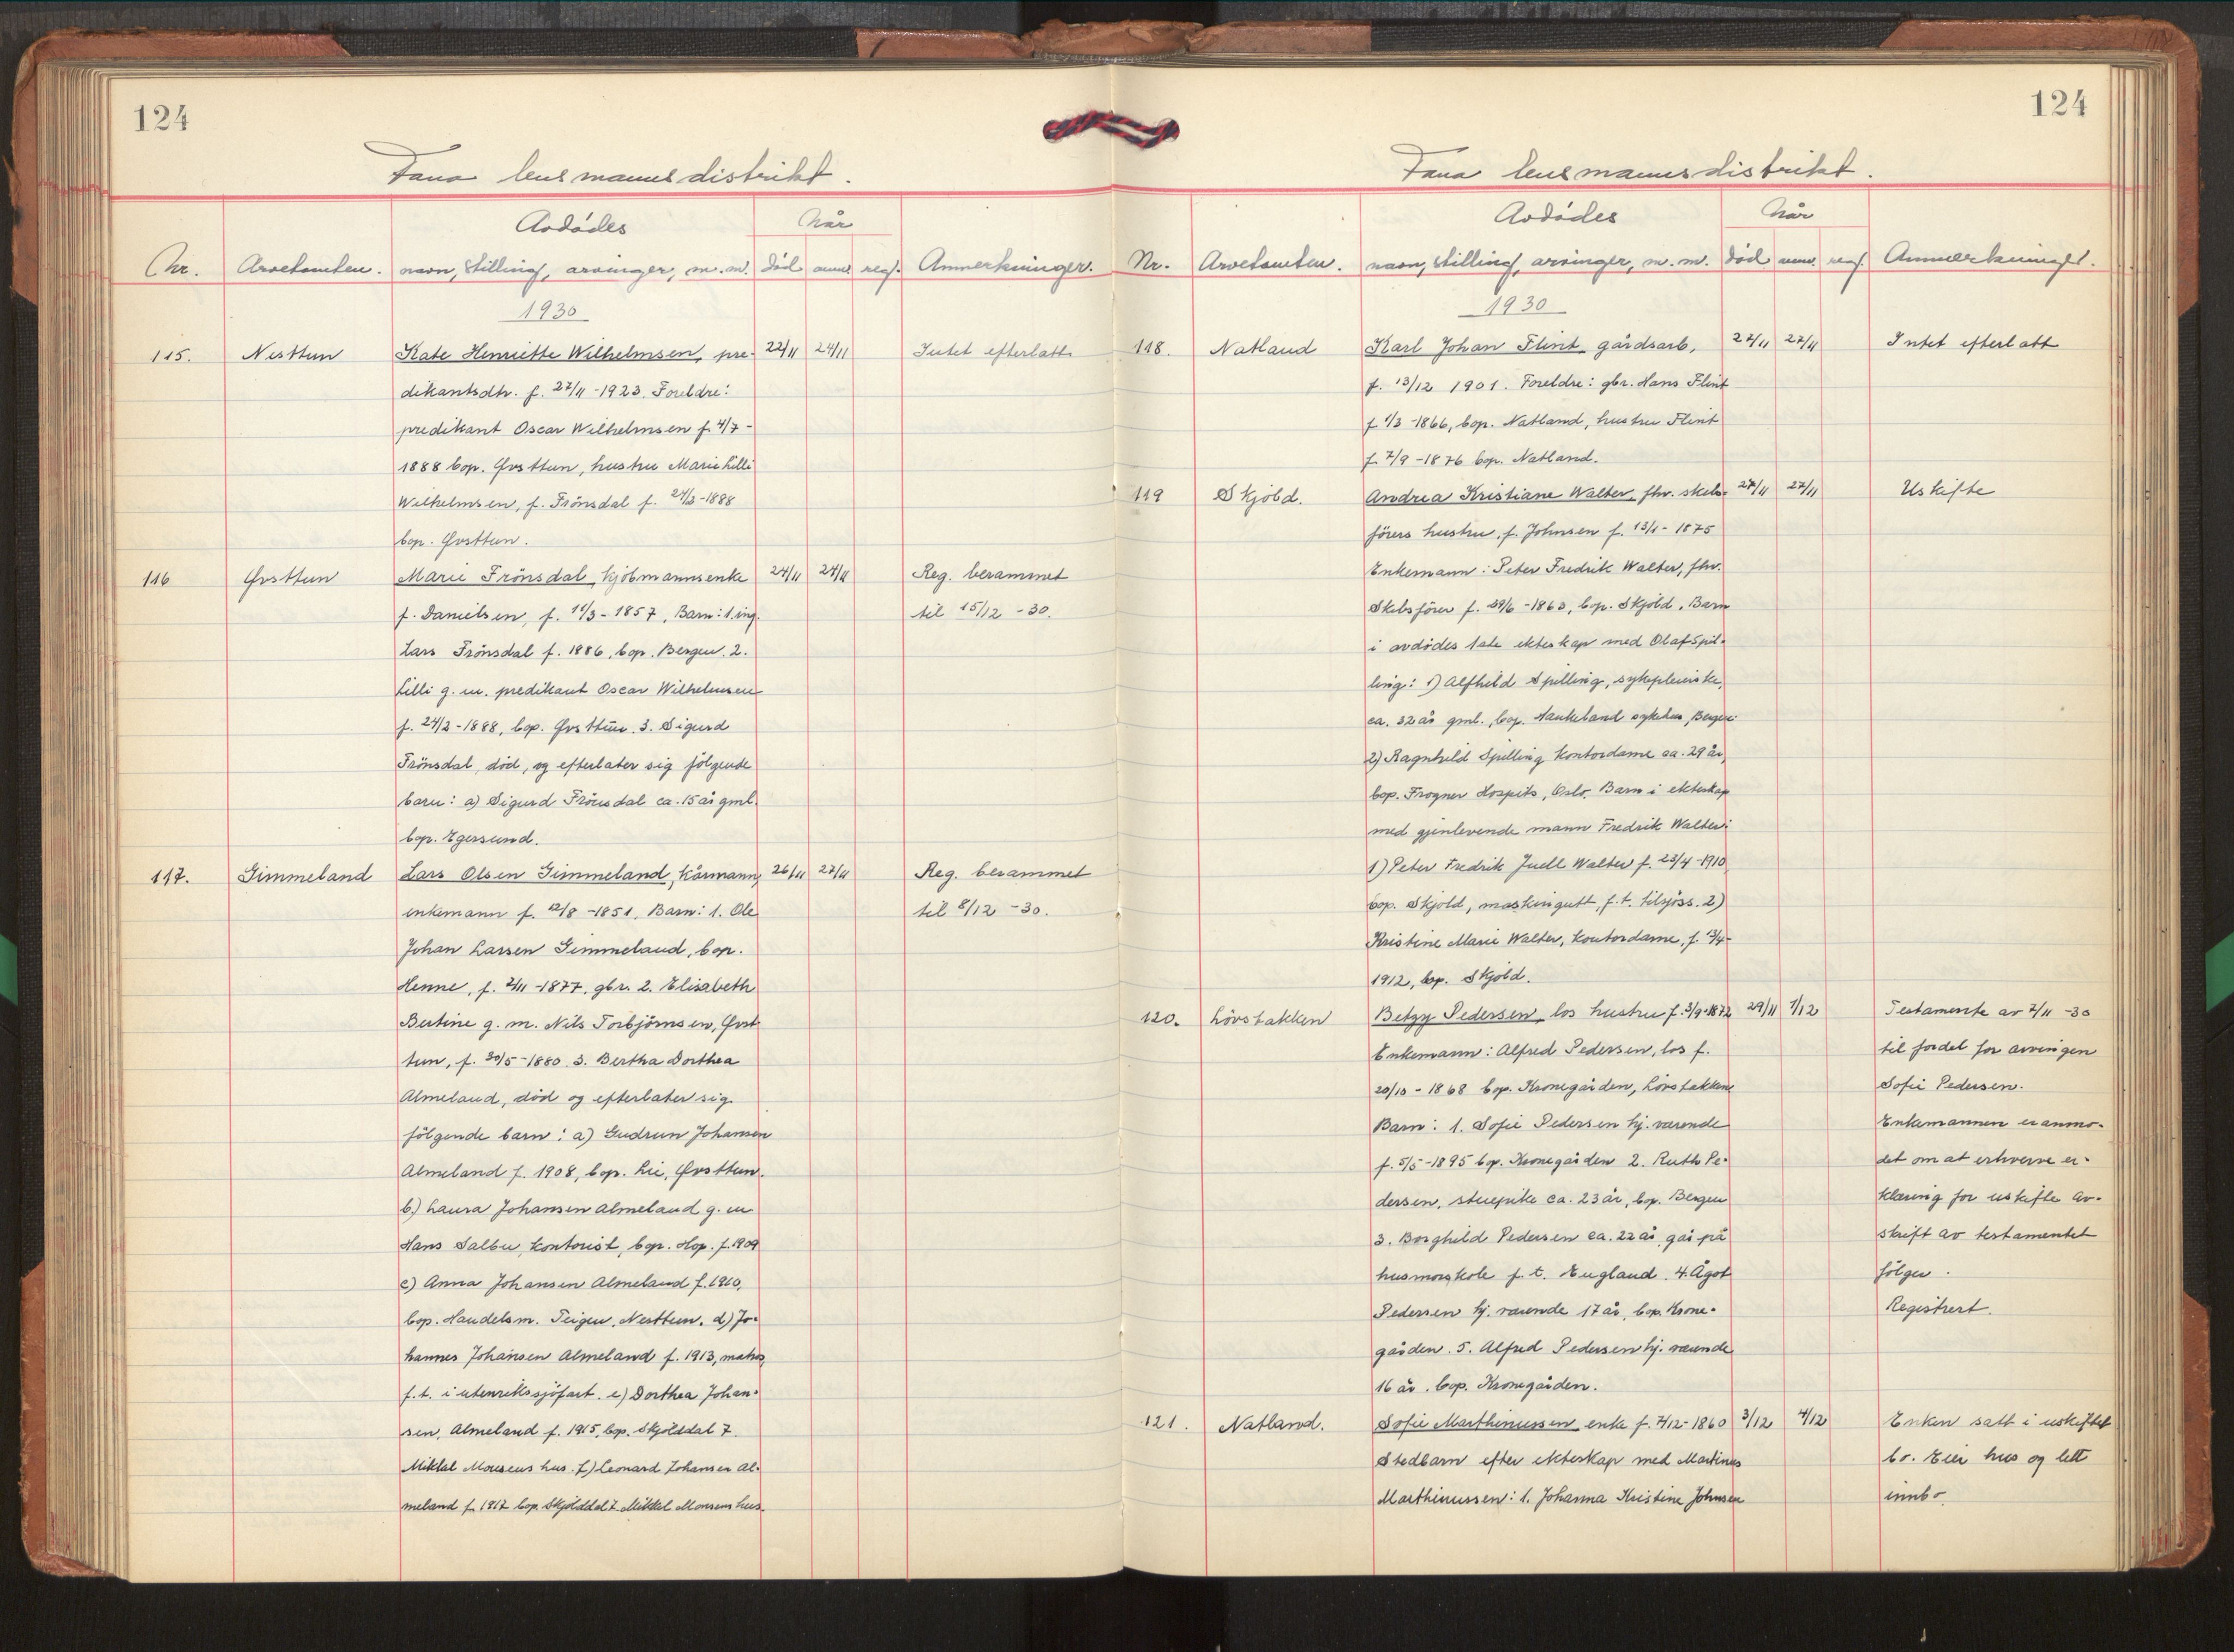 124
Fana lensmannsdistrikt.
Avdödes
Når
Nr. Arvetomten. navn, stilling, arvinger, m. m. död anm. reg. Anmerkninger.
1930
115. Nesttun Kate Henriette Wilhelmsen, pre- 22/11 24/11 Intet efterlatt.
dikantsdtr. f. 27/11 - 1923. Foreldre:
predikant Oscar Wilhelmsen f. 4/7 -
1888 bop. Övsttun, hustru Marie Lilli
Wilhelmsen, f. Frönsdal f. 24/2 - 1888
bop. Övsttun.
116 Övsttun Marie Frönsdal kjöbmannsenke 24/11 24/11 Reg. berammet
f. Danielsen, f. 11/3 - 1857, Barn: 1. ing. til 15/12 - 30.
Lars Frönsdal f. 1886, bop. Bergen. 2.
Lilli g. m. predikant Oscar Wilhelmsen
f. 24/2 - 1888, bop. Övsttun. 3. Sigurd
Frönsdal, död, og efterlater sig fölgende
barn: a) Sigurd Frönsdal ca. 15 år gml.
bop. Egersund.
117. Simmeland Lars Olsen Simmeland, kårmann, 26/11 27/11 Reg. berammet
enkemann f. 12/8 - 1851. Barn: 1. Ole til 8/12 - 30.
Johan Larsen Simmeland, bop.
Henne, f. 2/11 - 1877, gbr. 2. Elisabeth
Bertine g. m. Nils Torbjörnsen, Övst-
tun, f. 30/5 - 1880. 3. Bertha Dorthea
Almeland, död og efterlater sig
fölgende barn: a) Gudrun Johansen
Almeland f. 1908, bop. Lie, Övsttun.
b.) Laura Johansen Almeland g. m
Hans Salbu, kontorist, bop. Hop. f. 1909
c) Anna Johansen Almeland f. 1910,
bop. Handelsm. Teigen, Nesttun. d) Jo-
hannes Johansen Almeland f. 1913, matros
f. t. i utenrikssjöfart. e) Dorthea Johan-
sen, Almeland f. 1915, bop. Skjölddal 7.
Mikkel Monsens hus. f) Leonard Johansen Al-
meland f. 1917 bop. Skjölddal 7. Mikkel Monsens hus.
124
Fana lensmannsdistrikt.
Avdödes
Når
Nr. Arvetomten. navn, stilling, arvinger, m. m. död anm. reg. Anmerkninger.
1930
118. Natland Karl Johan Flint gårdsarb, 22/11 22/11 Intet efterlatt
f. 13/12 1901. Foreldre: gbr. Hans Flint
f 1/3 - 1866, bop. Natland, hustru Flint
f. 7/9 - 1876 bop. Natland.
119 Skjöld. Andrea Kristiane Walter, fhv. skebs- 27/11 27/11 Uskifte
förers hustru, f. Johnsen f. 13/1 - 1875
Enkemann: Peter Fredrik Walter, fhv.
Skebsförer f. 29/6 - 1863, bop. Skjöld. Barn
i avdödes 1ste ekteskap med Olaf Spil-
ling: 1) Alfhild Spilling, sykepleierske,
ca. 32 år gml., bop. Haukeland sykehus, Bergen:
2) Ragnhild Spilling kontordame ca. 29 år,
bop. Frogner Hospits, Oslo. Barn i ekteskap
med gjenlevende mann Fredrik Walter:
1) Peter Fredrik Juell Walter f. 23/4 - 1910
bop. Skjold, maskingutt, f. t. tilsjöss. 2)
Kristine Marie Walter, kontordame, f. 
1912, bop. Skjöld.
120. Lövstakken Betzy Pedersen, los hustru f. 3/9 - 1872 29/11 1/12 Testamente av 2/11 - 30
Enkemann: Alfred Pedersen, los f. til fordel for arvingen
20/10 - 1868 bop. Kronegården, Lövstakken Sofie Pedersen.
Barn: 1. Sofie Pedersen hj. værende Enkemannen er anmo-
f. 5/5 - 1895 bop. Kronegården 2. Ruth Pe- det om at erhverve er-
dersen, stuepike ca. 23 år, bop. Bergen klæring for uskifte av-
3. Borghild Pedersen ca. 22 år, går på skrift av testamentet
husmorskole f. t. England. 4. Ågot fölger.
Pedersen hj. værende 17 år, bop. Krone- Registrert.
gården. 5. Alfred Pedersen hj. værende
16 år. bop. Kronegården.
121. Natland. Sofie Marthinussen enke f. 7/12 - 1860 3/12 4/12 Enken satt i uskiftet
Stedbarn efter ekteskap med Martinus bo. Eier hus og litt
Marthinussen: 1. Johanna Kristine Johnsen innbo